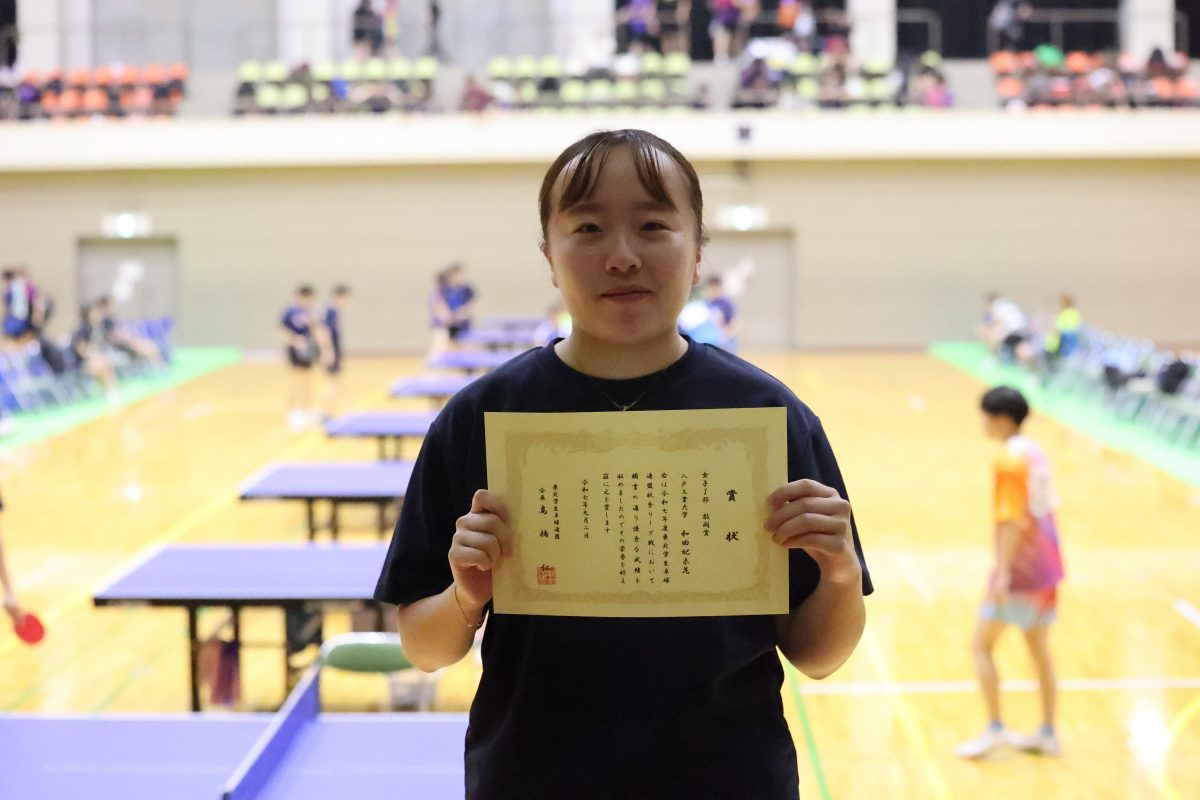 賞状
女子Ⅰ部 敢闘賞
八戸工業大学 和田妃来花
右は令和七年度東北学生卓球
連盟秋季リーグ戦において
頭書の通り優秀な成績を
収めましたのでその栄誉を称え
茲に之を賞します
令和七年九月二日
東北学生卓球連盟
会長 髙橋